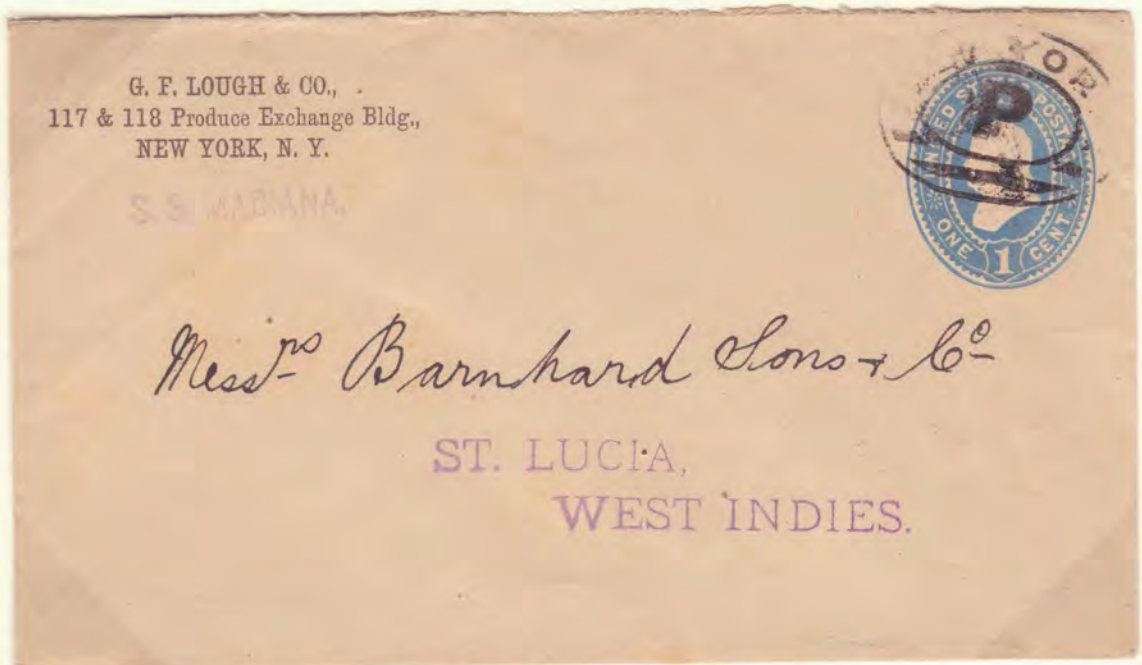 G. F. LOUGH & CO.,
117 & 118 Produce Exchange Bldg.,
NEW YORK, N. Y.
S.S. MADIANA.
YOR
P
UNITED STATES POSTAGE
ONE 1 CENT
Messrs Barnhard Sons & Co
ST. LUCIA,
WEST INDIES.